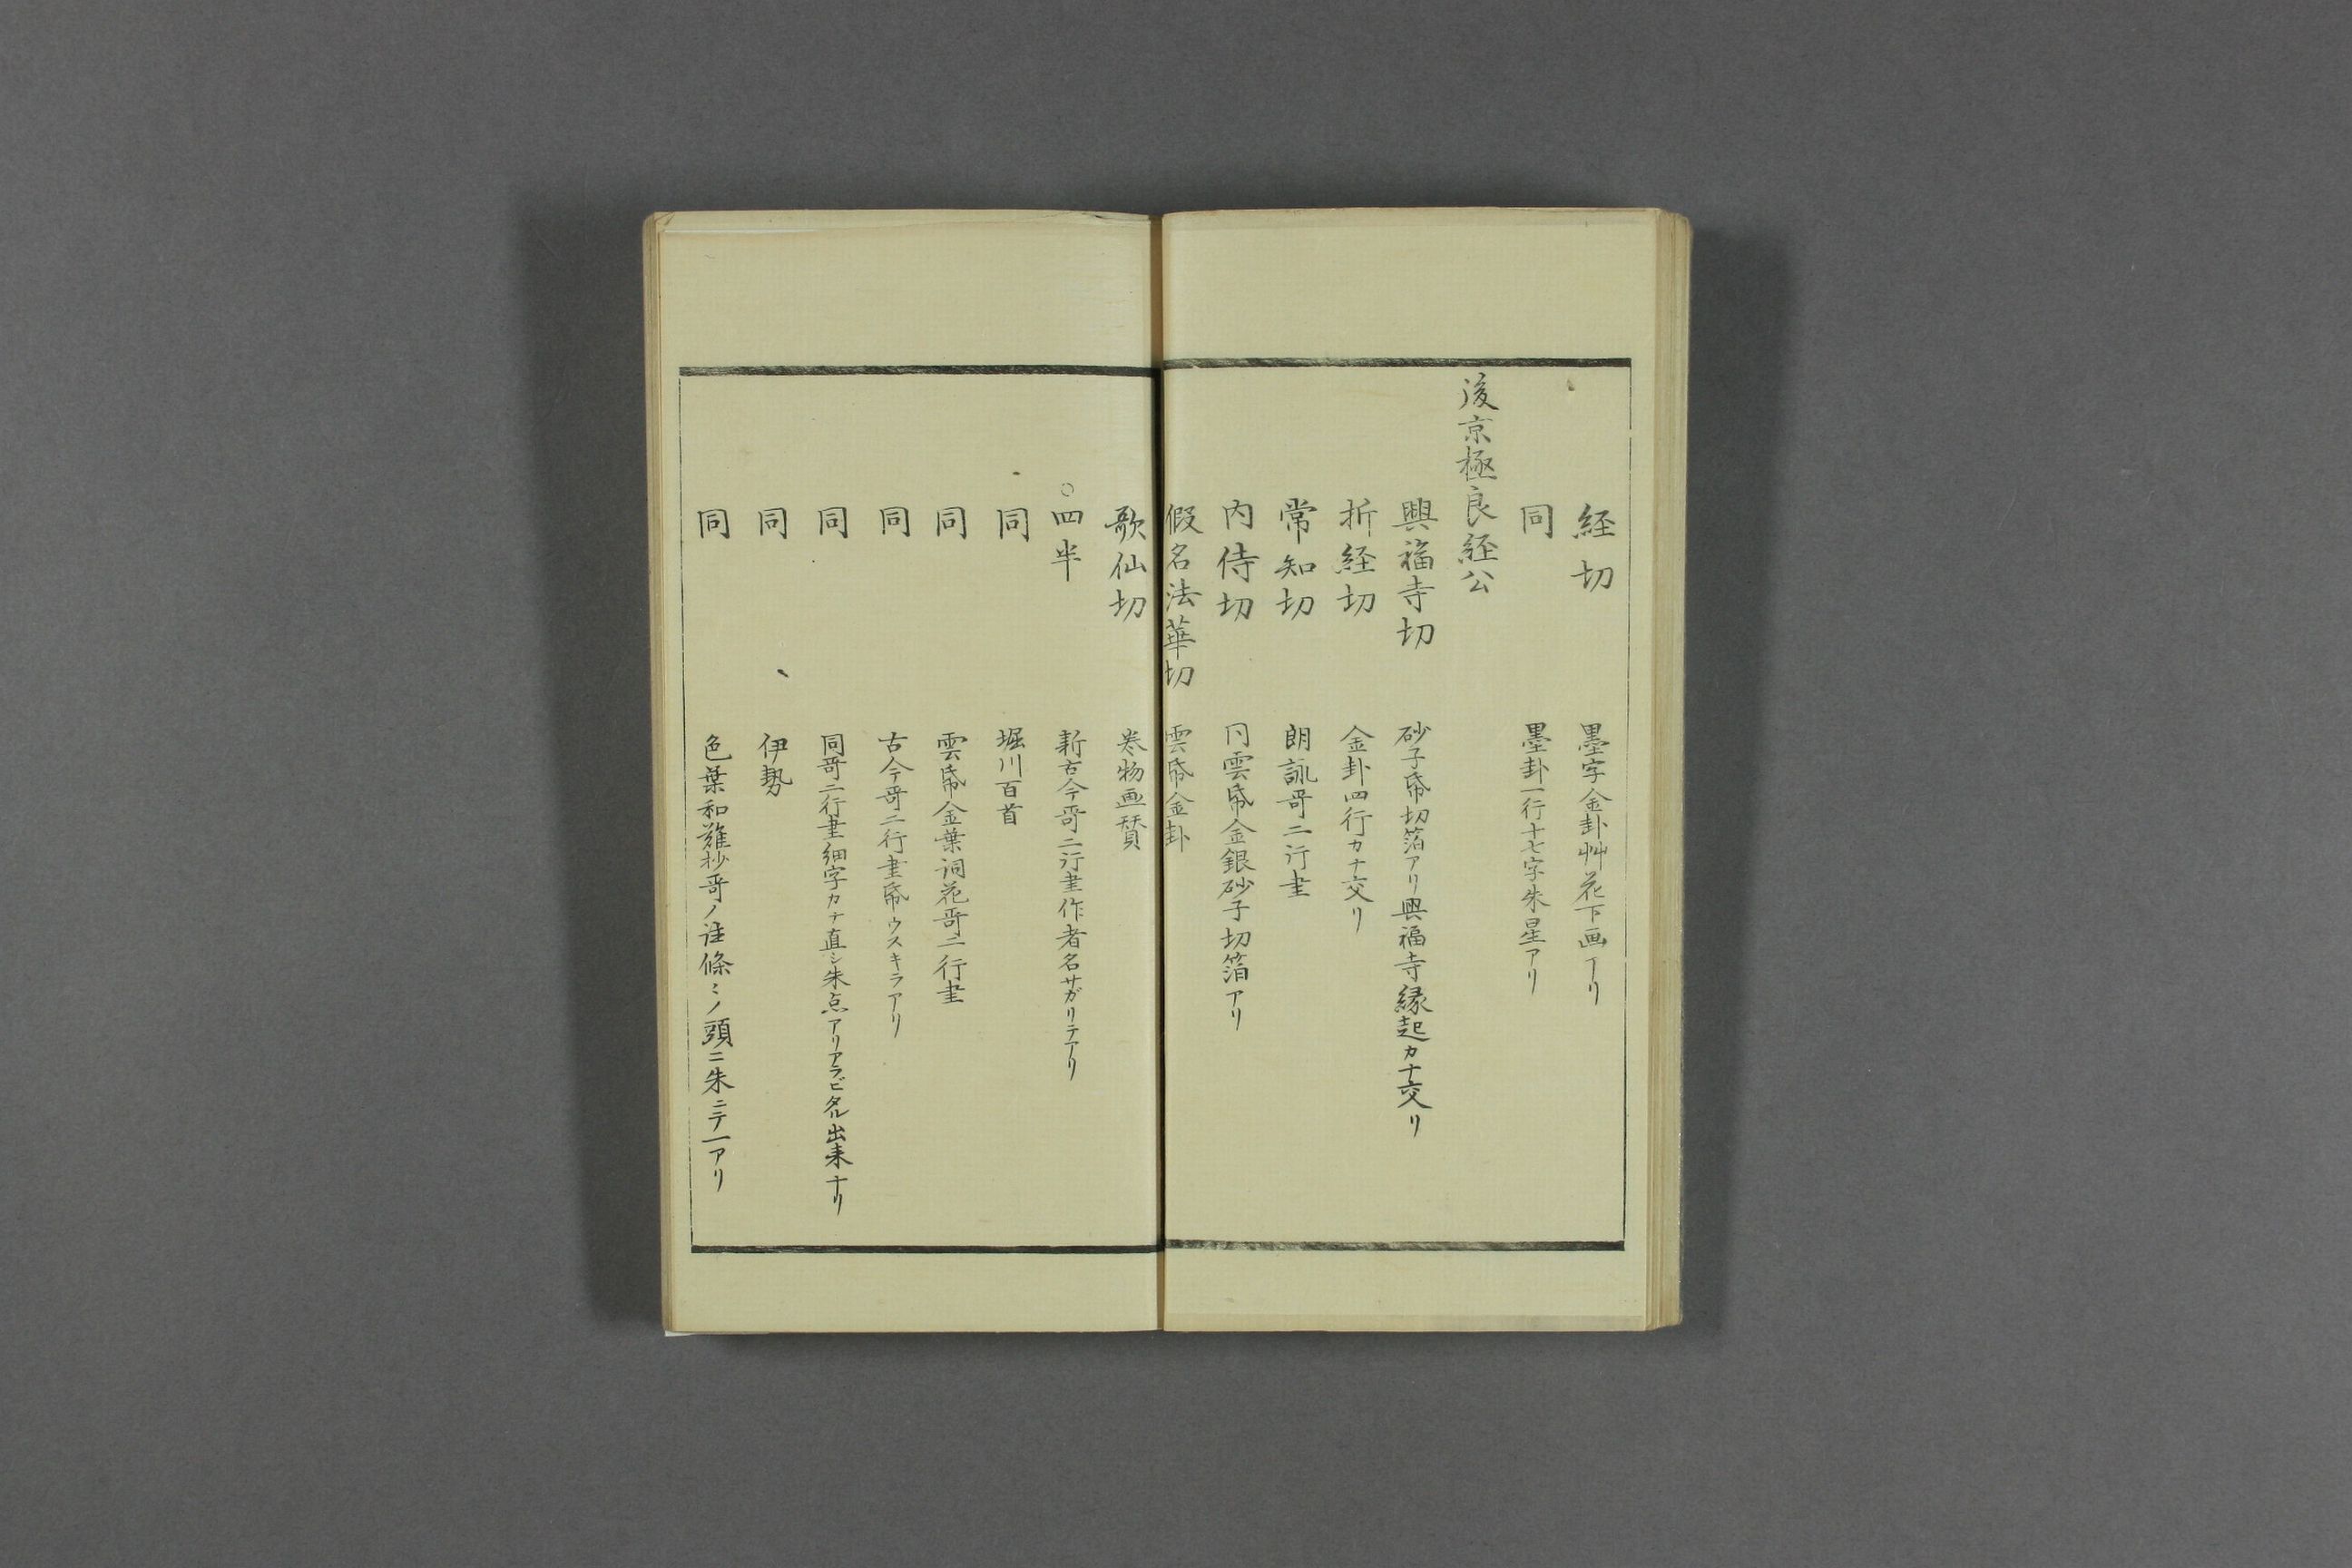 経切 墨字金卦艸花下画アリ
同 墨卦一行十七字朱星アリ
後京極良経公
興福寺切 砂子帋切箔アリ興福寺縁起カナ交リ
折経切 金卦四行カナ交リ
常知切 朗詠哥二行書
内侍切 同雲帋金銀砂子切箔アリ
假名法華切 雲帋金卦
歌仙切 巻物画賛
○四半 新古今哥二行書作者名サガリテアリ
同 堀川百首
同 雲帋金葉詞花哥二行書
同 古今哥二行書帋ウスキラアリ
同 同哥二行書細字カナ直シ朱点アリアラビタル出来ナリ
同 伊勢
同 色葉和難抄哥ノ注條〻ノ頭ニ朱ニテ一アリ